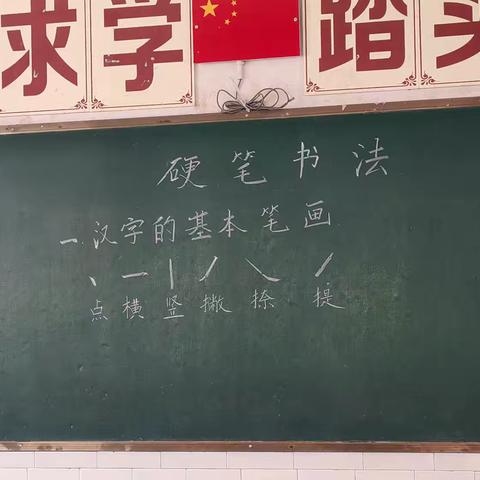 求学 踏
硬笔书法
一.汉字的基本笔画
丶 一 丨 丿 ㇏ ㇀
点 横 竖 撇 捺 提